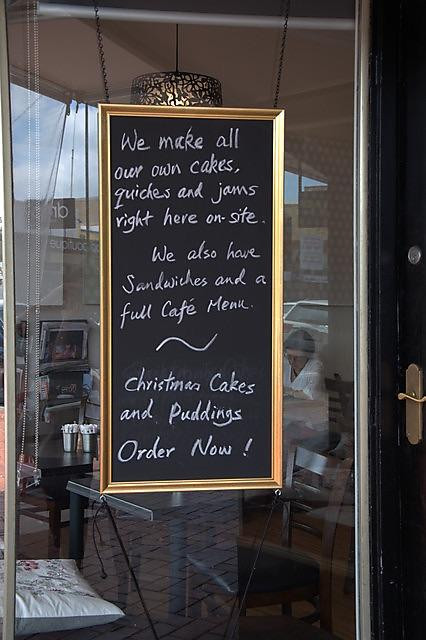 We make all
our own cakes,
quiches and jams
right here on-site.
We also have
Sandwiches and a
full Café Menu.
Christmas Cakes
and Puddings
Order Now!